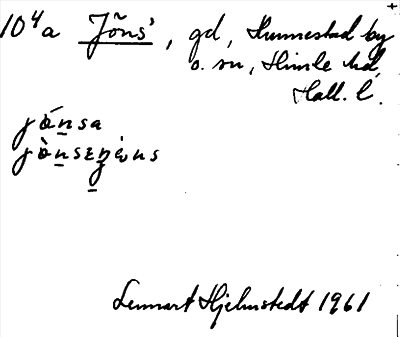 10⁴a Jöns', gd, Hunnestad by
o. sn, Himle hd,
Hall. l.
jònsa
Lennart Hjelmstedt 1961